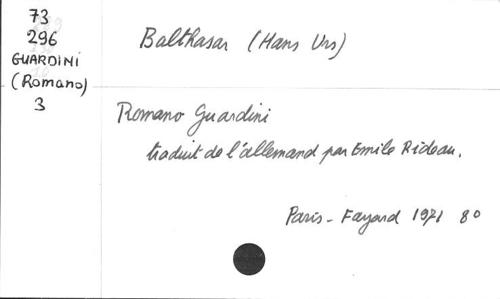 73
296
GUARDINI
(Romano)
3
Balthasar (Hans Urs)
Romano Guardini
traduit de l'allemand par Emile Rideau.
Paris - Fayard 1971 8°